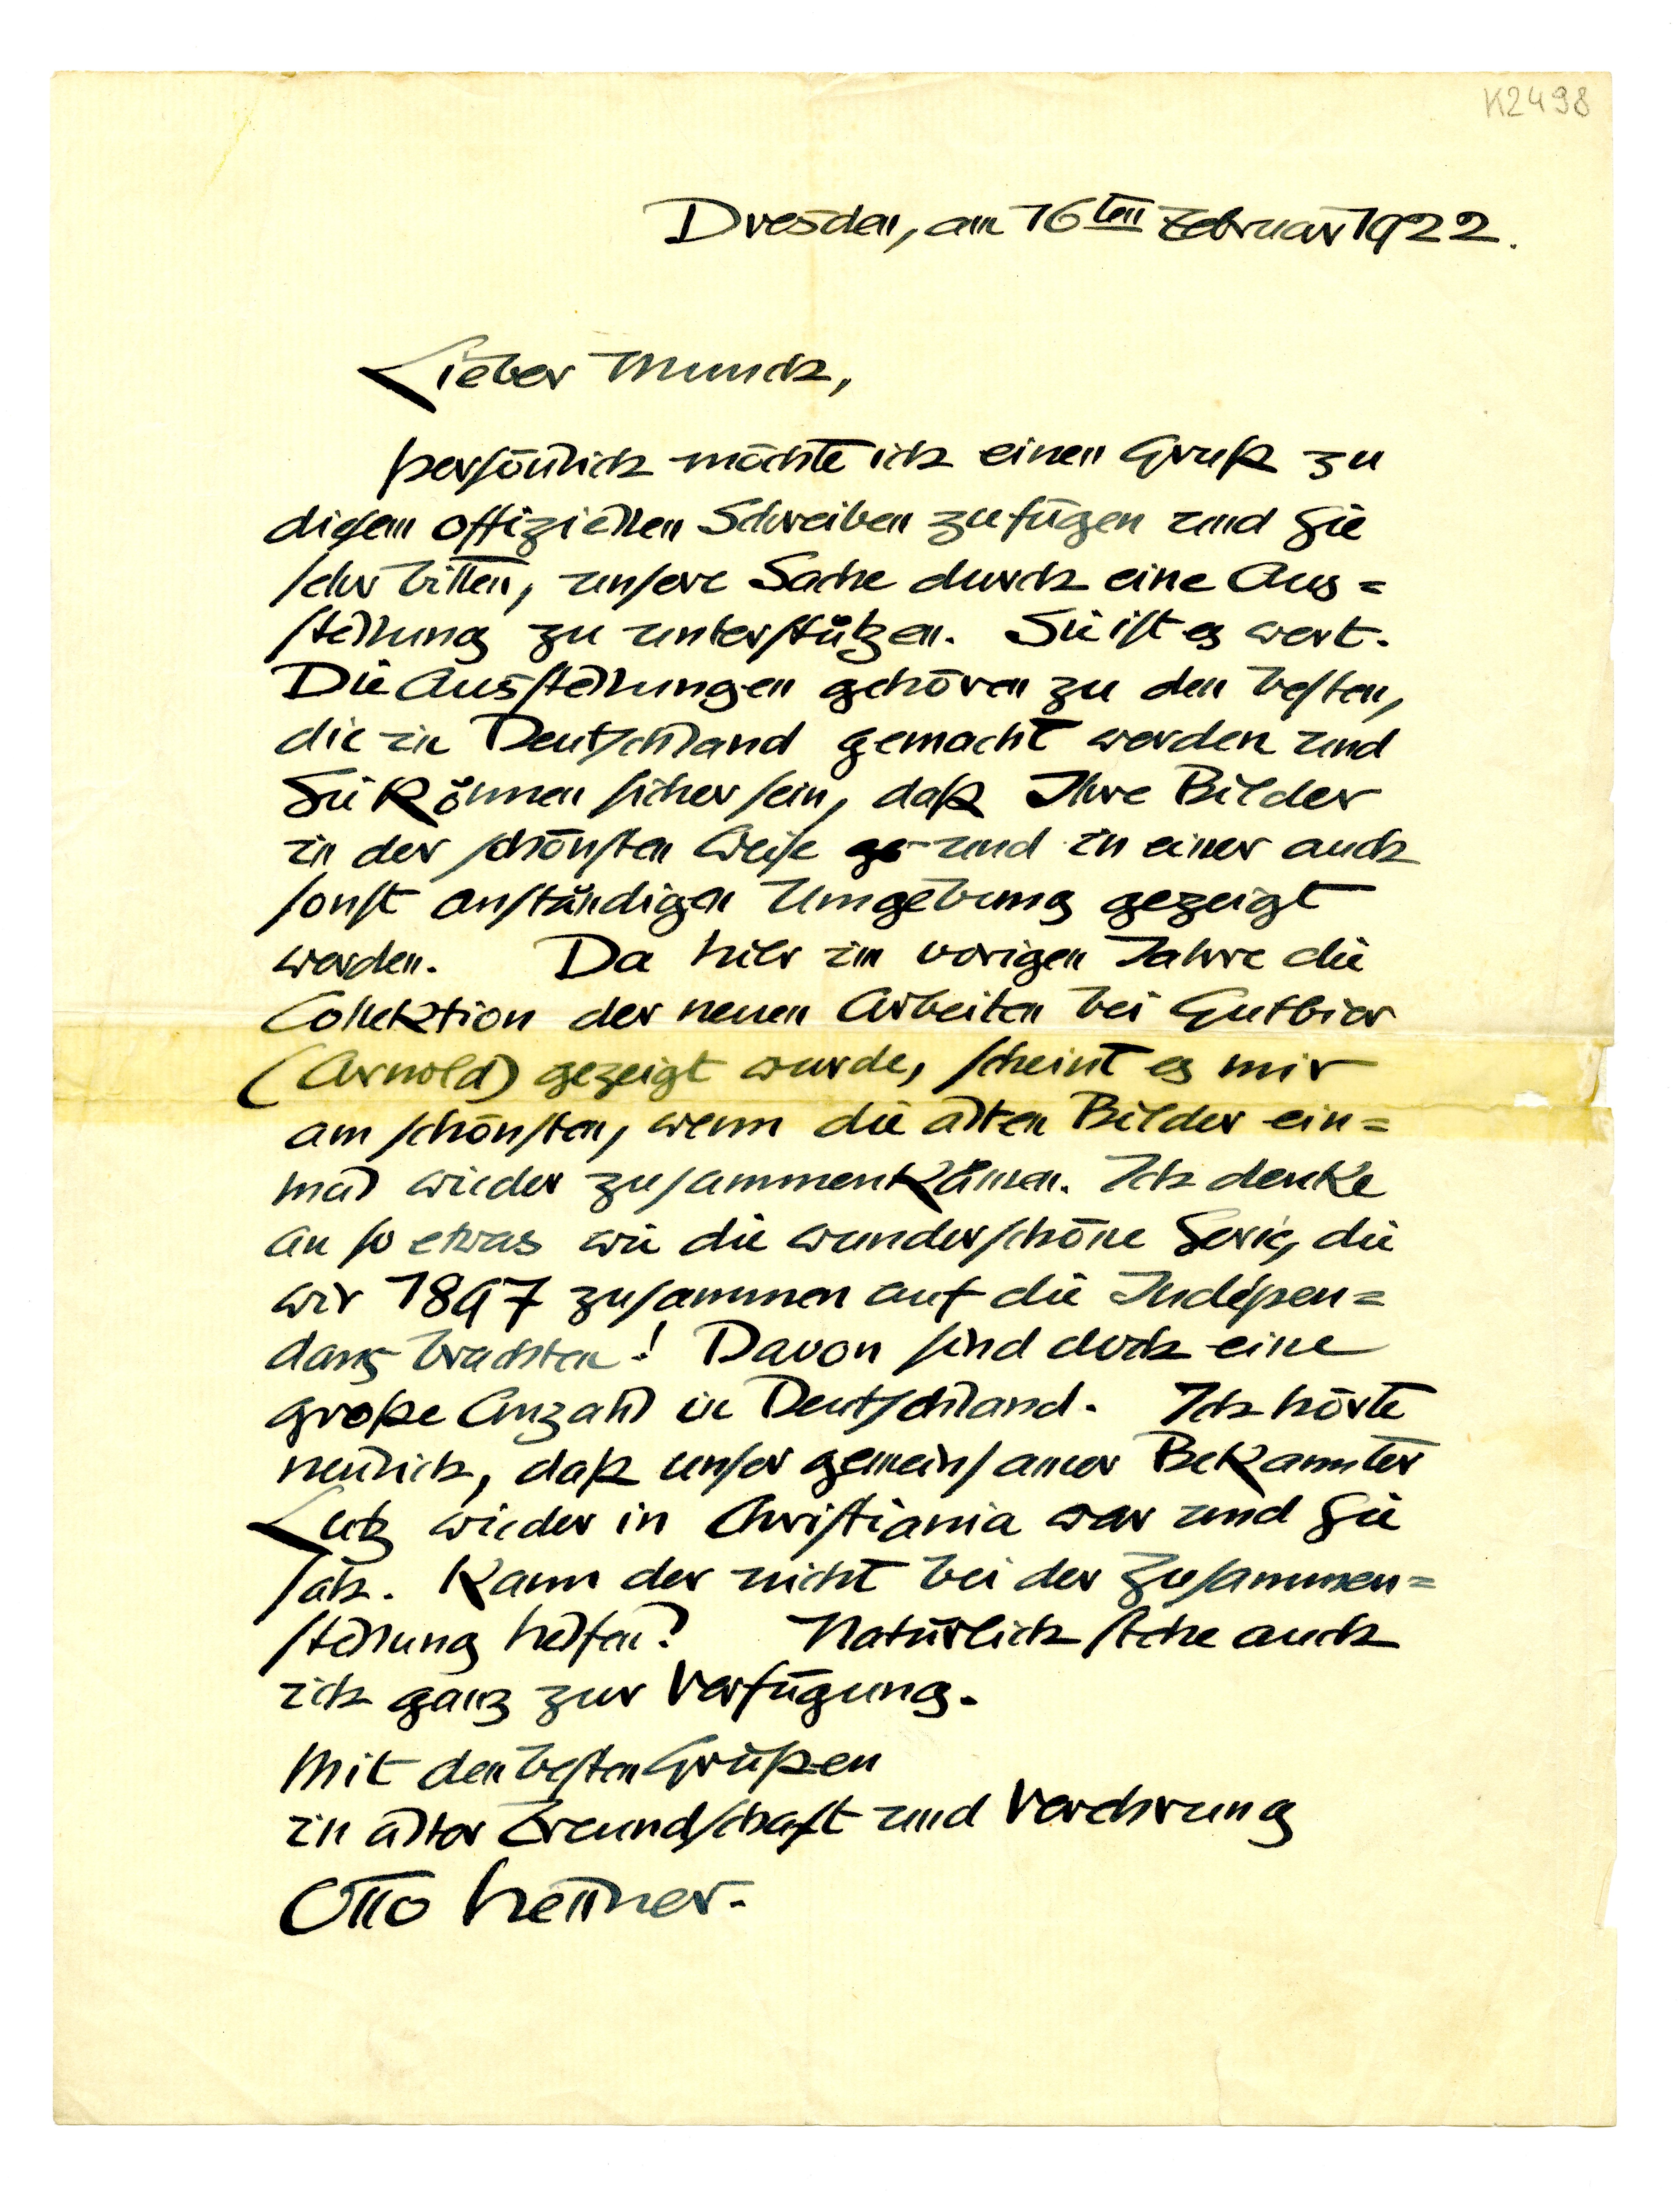 K2498
Dresden, am 16ten Februar 1922.
Lieber Munch,
persönlich möchte ich einen Gruß zu
diesem offiziellen Schreiben zufügen und Sie
sehr bitten, unsere Sache durch eine Aus=
stellung zu unterstützen. Sie ist es wert.
Die Ausstellungen gehören zu den besten,
die in Deutschland gemacht werden und
Sie können sicher sein, daß Ihre Bilder
in der schönsten Weise ge und in einer auch
sonst anständigen Umgebung gezeigt
werden. Da hier im vorigen Jahre die
Collektion der neuen Arbeiten bei Gutbier
(Arnold) gezeigt wurde, scheint es mir
am schönsten, wenn die alten Bilder ein=
mal wieder zusammenkämen. Ich denke
an so etwas wie die wunderschöne Serie, die
wir 1897 zusammen auf die Indépen=
dants brachten! Davon sind doch eine
große Anzahl in Deutschland. Ich hörte
neulich, daß unser gemeinsamer Bekannter
Lutz wieder in Christiania war und Sie
sah. Kann der nicht bei der Zusammen=
stellung helfen? Natürlich stehe auch
ich ganz zur Verfügung.
Mit den besten Grüßen
in alter Freundschaft und Verehrung
Otto Hettner.